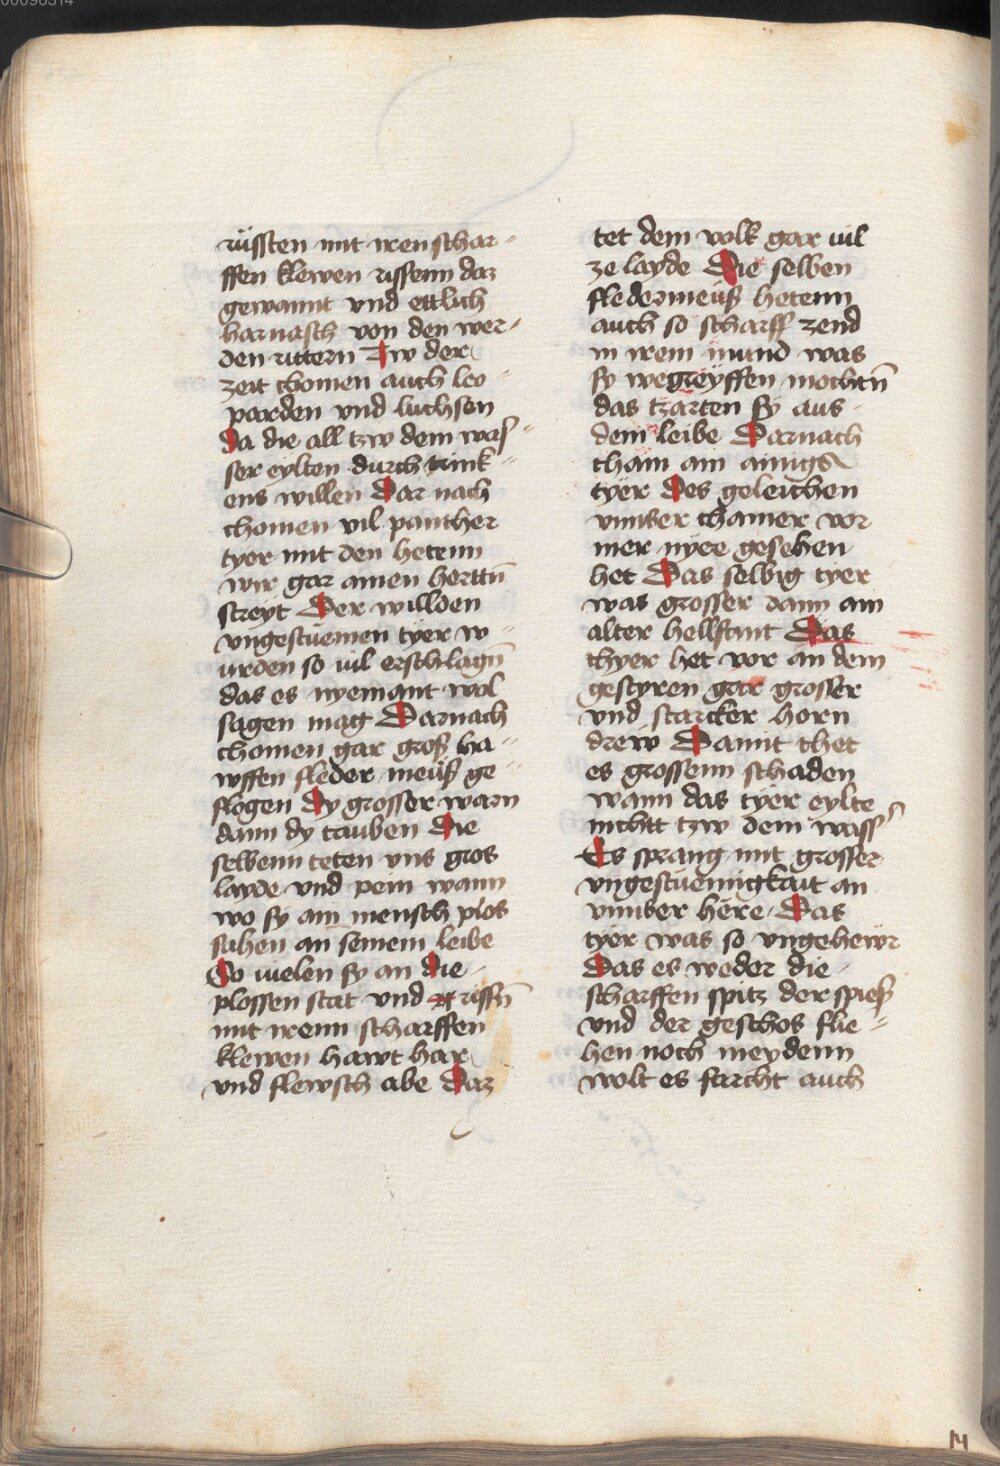 rüssten mit iren schar-
ffen klewen rissenn daz
gewannt vnd ettlich
harnasch von den wer-
den rittern Tzw der
zeit chomen auch leo-
parden vnd luchsen
Da die all tzw dem was-
ser eylten durch trink-
ens willen Dar nach
chomen vil panther
tyer mit den hetenn
wir gar ainen herttñ
streyt Der willden
vngestuemen tyer w-
urden so uil erschlagñ
das es nyemant wol
sagen mag Darnach
chomen gar groß ha-
wffen fleder meüß ge-
flogen Dy grosser warn
dann dy tauben Die
selbenn teten vns gros
layde vnd pein wann
wo sy ain mensch plos
sahen an seinem leibe
So uielen sy an die
plossen stat vnd rissñ
mit irenn scharffen
klewen hawt har
vnd flewsch abe Daz
tet dem volk gar uil
ze layde Die selben
fledermeüß hetenn
auch so scharff zend
in irem mund was
sy wegreyffen mochtñ
das tzarten sy aus
dem leibe Darnach
cham ain ainigs
tyer Des geleichen
vnnser chainer vor
mer nyee gesehen
het Das selbig tyer
was grosser dann ain
alter hellffant Das
thyer het vor an dem
gestyren gar grosser
vnd starcker horn
drew Damit thet
es grossenn schaden
wann das tyer eylte
nichtt tzw dem wasser
Es sprang mit grosser
vngestuemigkait an
vnnser here Das
tyer was so vngehewr
Das es weder die
scharffen spitz der spieß
vnd der geschos flie-
hen noch meydenn
wolt es facht auch
14